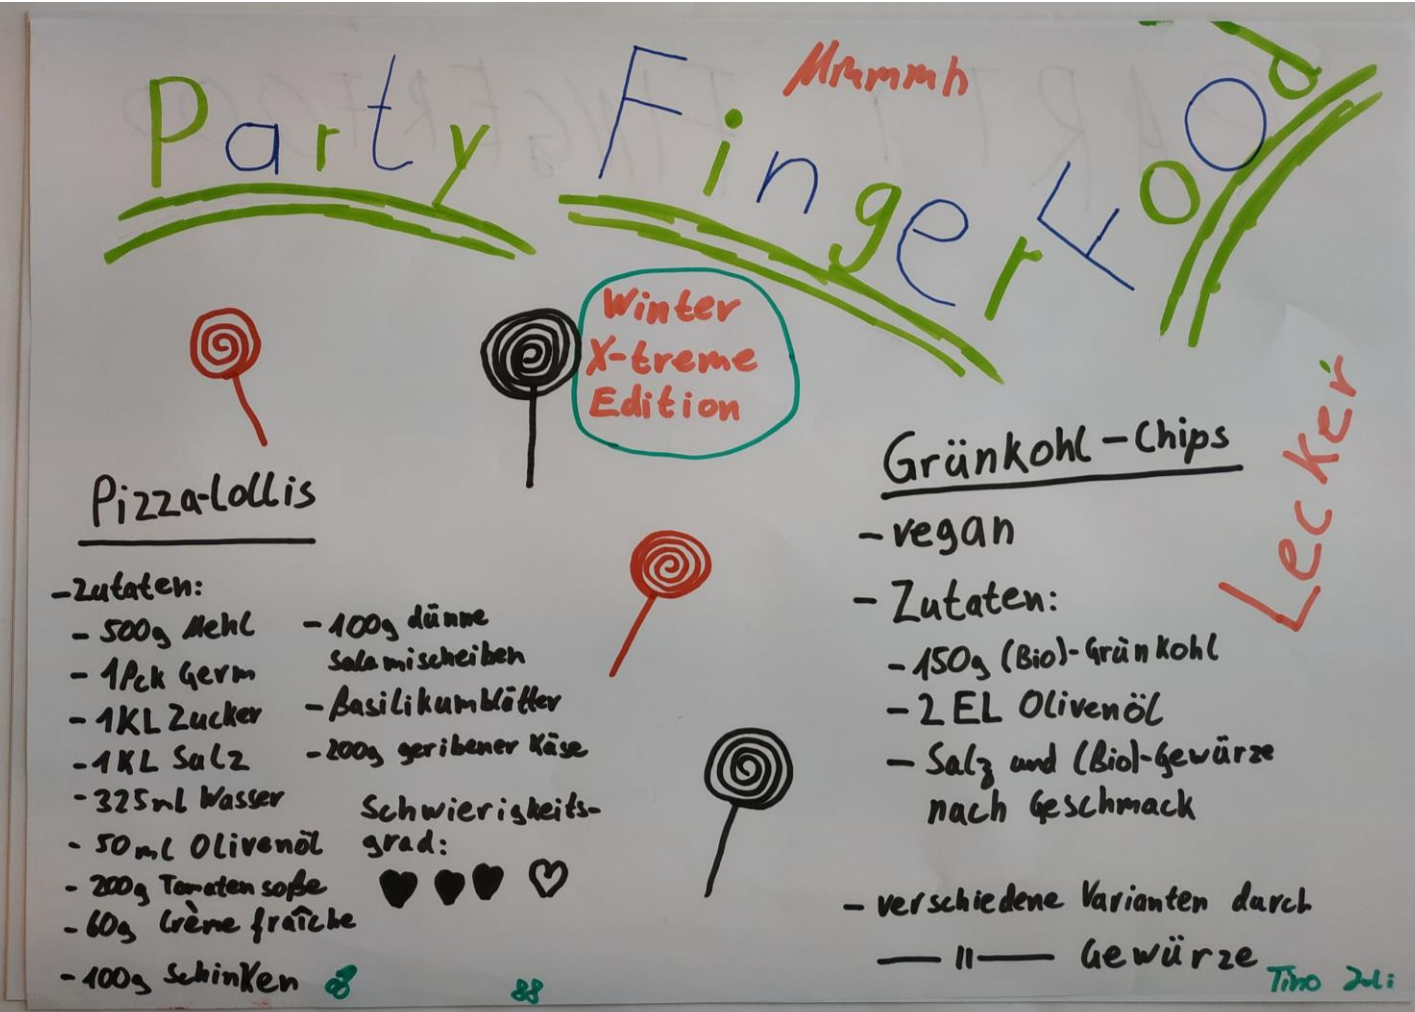 Party FingerFood
Mmmmh
Winter
X-treme
Edition
Lecker
Pizza-Lollis
- Zutaten:
- 500g Mehl
- 1Pck Germ
- 1KL Zucker
- 1KL Salz
- 325ml Wasser
- 50ml Olivenöl
- 200g Tomatensoße
- 60g Crème fraîche
- 100g Schinken
- 100g dünne
Salamischeiben
- Basilikumblätter
- 200g geribener Käse
Schwierigkeits-
grad:
Grünkohl-Chips
- vegan
- Zutaten:
- 150g (Bio)-Grünkohl
- 2 EL Olivenöl
- Salz und (Bio)-Gewürze
nach Geschmack
- verschiedene Varianten durch
— 11 — Gewürze
Tino Juli